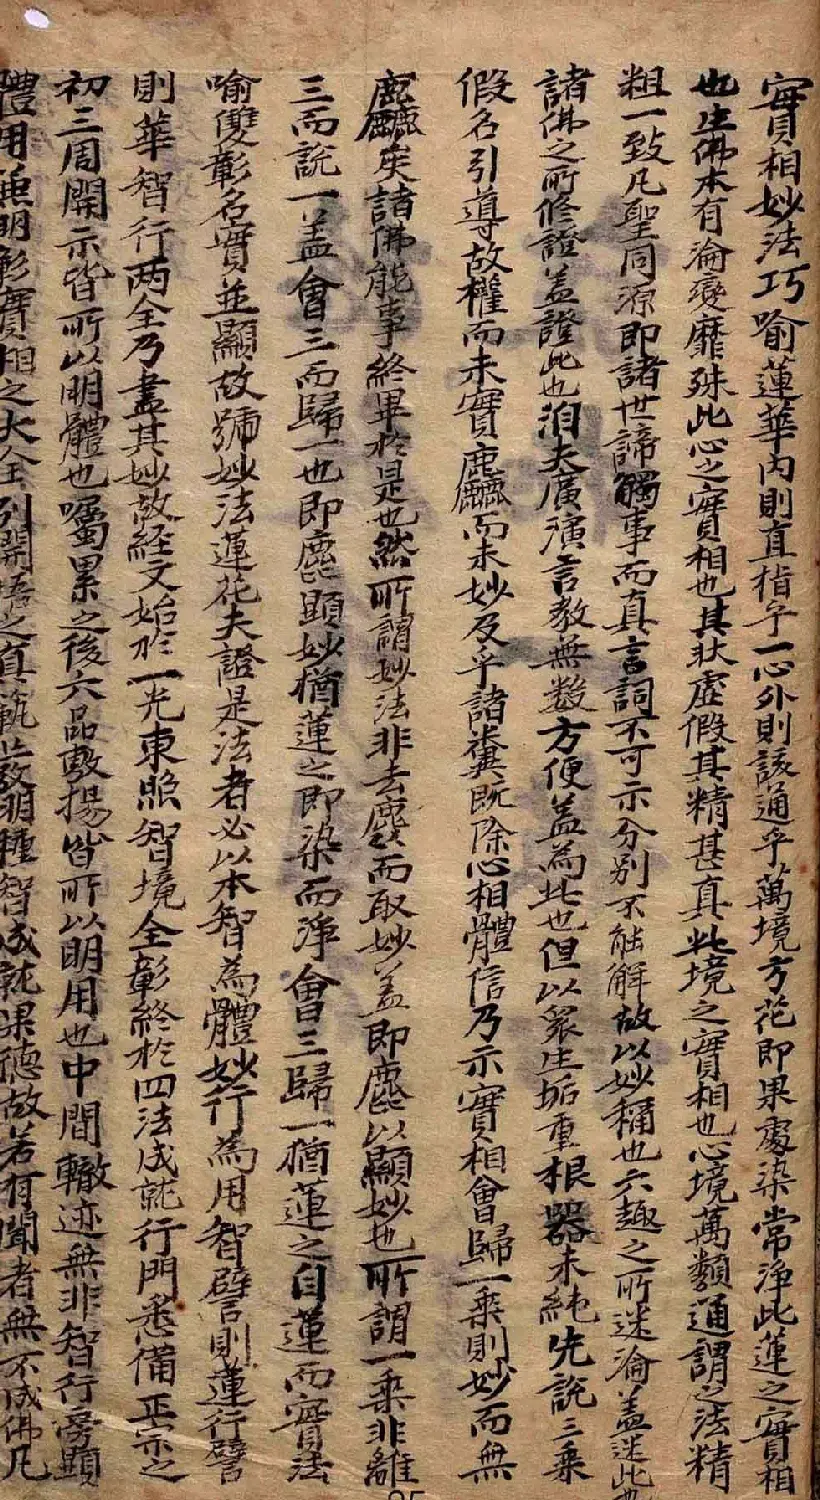 實相妙法巧喻蓮華內則直指乎一心外則該通乎萬境方花即果處染常淨此蓮之實相
也生佛本有淪變靡殊此心之實相也其狀虛假其精甚真此境之實相也心境萬類通謂之法精
粗一致凡聖同源即諸世諦觸事而真言詞不可示分別不能解故以妙稱也六趣之所迷淪盖迷此也
諸佛之所修證盖證此也洎夫廣演言教無数方便盖為此也但以衆生垢重根器未純先說三乘
假名引導故權而未實麤而未妙及乎諸糞既除心相體信乃示實相會歸一乘則妙而無
麤矣諸佛能事終畢於是也然所謂妙法非去麁而取妙盖即麁以顯妙也所謂一乘非離
三而說一盖會三而歸一也即麁顯妙猶蓮之即染而淨會三歸一猶蓮之自蓮而實法
喻雙彰名實並顯故號妙法蓮花夫證是法者必以本智為體妙行為用智譬則蓮行譬
則華智行两全乃盡其妙故経文始於一光東照智境全彰終於四法成就行門悉備正宗之
初三周開示皆所以明體也囑累之後六品敷揚皆所以明用也中間轍迹無非智行旁顯
體用兼明彰實相之大全列開悟之真範 發明種智成就果德故若有聞者無不成佛凡